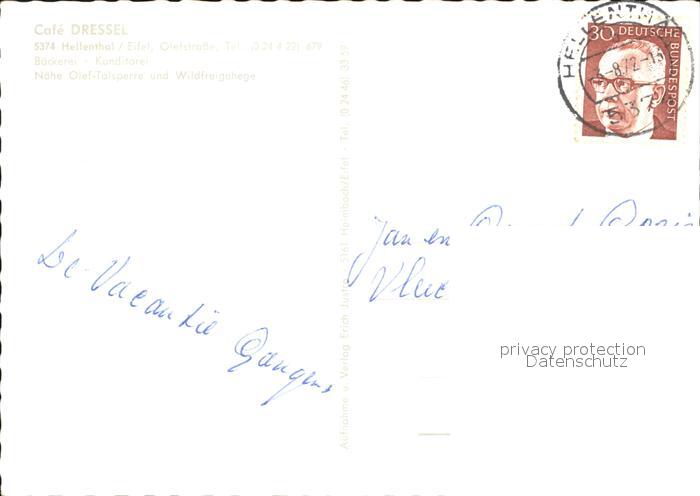 Café DRESSEL
5374 Hellenthal / Eifel, Olefstraße, Tel. (0 24 4 22) 479
Bäckerei - Konditorei
Nähe Olef-Talsperre und Wildfreigehege
HELLENTHAL
-8.72-1
537
30 DEUTSCHE
BUNDESPOST
Aufnahme u. Verlag Erich Justra, 5161 Heimbach/Eifel - Tel. (0 24 46) 33 59
De Vacantie Gangers
Jan en
privacy protection
Datenschutz